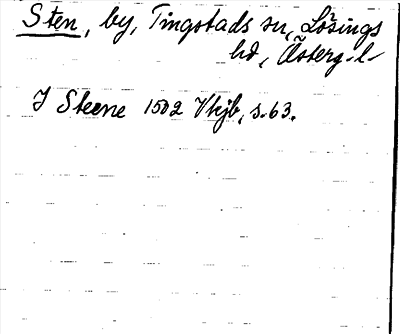 Sten, by, Tingstads sn, Lösings
hd, Österg. l.
I Steene 1502 Vkjb, s. 63.